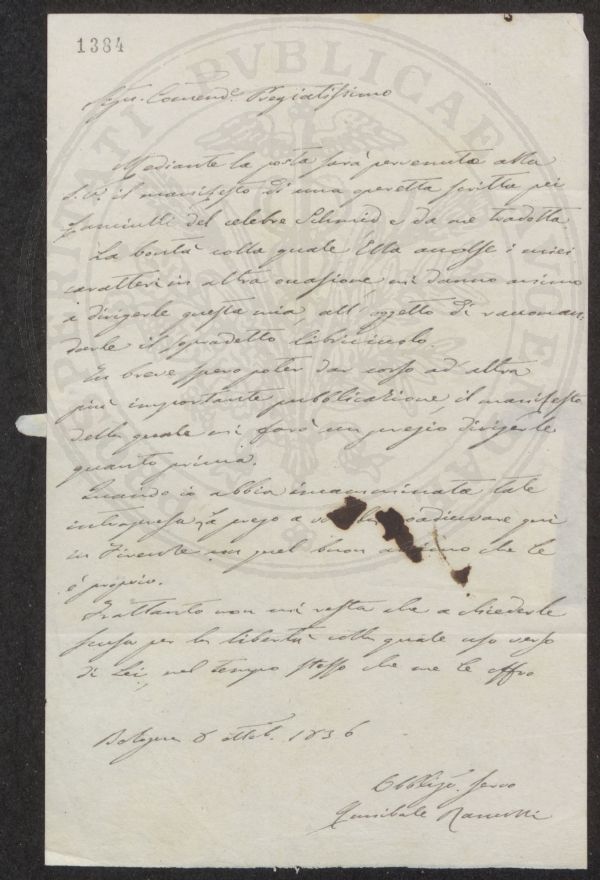 1384
Sigr. Comend.e Pregiatissimo
Mediante la posta sarà pervenuta alla
S.V. il manifesto di una operetta scritta pei
fanciulli del celebre Schmid e da me tradotta.
La bontà colla quale Ella accolse i miei
caratteri in altra occasione mi danno animo
a dirigerle questa mia, all'oggetto di raccoman-
darle il sopradetto libricciuolo.
In breve spero poter dar corso ad altra
più importante pubblicazione, il manifesto
della quale mi farò un pregio dirigerle
quanto prima.
Quando io abbia incamminata tale
intrapresa La prego a coadiuvare qui
in Firenze con quel buon animo che le
è proprio.
Frattanto non mi resta che a chiederle
scusa per la libertà colla quale uso verso
di Lei, nel tempo stesso che me le offro
Bologna 8 ottob. 1836
Obbligo. servo
Annibale
PROSPERITATI PVBLICAE